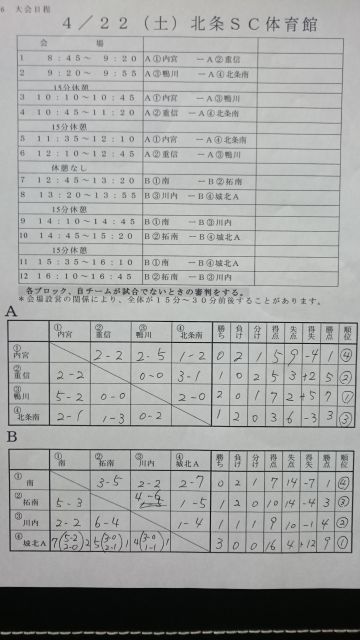 6 大会日程
4/22(土)北条SC体育館
会 場
1 8:45~ 9:20 A①内宮 ーA②重信
2 9:20~ 9:55 A③鴨川 ーA④北条南
15分休憩
3 10:10~10:45 A①内宮 ーA③鴨川
4 10:45~11:20 A②重信 ーA④北条南
15分休憩
5 11:35~12:10 A①内宮 ーA④北条南
6 12:10~12:45 A②重信 ーA③鴨川
休憩なし
7 12:45~13:20 B①南 ーB②拓南
8 13:20~13:55 B③川内 ーB④城北A
15分休憩
9 14:10~14:45 B①南 ーB③川内
10 14:45~15:20 B②拓南 ーB④城北A
15分休憩
11 15:35~16:10 B①南 ーB④城北A
12 16:10~16:45 B②拓南 ーB③川内
各ブロック、自チームが試合でないときの審判をする。
*会場設営の関係により、全体が15分~30分前後することがあります。
A
① 内宮 ② 重信 ③ 鴨川 ④ 北条南 勝ち 負け 分け 得点 失点 得失 勝点 順位
① 内宮 2-2 2-5 1-2 0 2 1 5 9 -4 1 ④
② 重信 2-2 0-0 3-1 1 0 2 5 3 +2 5 ②
③ 鴨川 5-2 0-0 2-0 2 0 1 7 2 +5 7 ①
④ 北条南 2-1 1-3 0-2 1 2 0 3 6 -3 3 ③
B
① 南 ② 拓南 ③ 川内 ④ 城北A 勝ち 負け 分け 得点 失点 得失 勝点 順位
① 南 3-5 2-2 2-7 0 2 1 7 14 -7 1 ④
② 拓南 5-3 4-6 1-5 1 2 0 10 14 -4 3 ③
③ 川内 2-2 6-4 1-4 1 1 1 9 10 -1 4 ②
④ 城北A 7(5-2 2-0)2 5(3-0 2-1)1 4(3-0 1-1)1 3 0 0 16 4 +12 9 ①